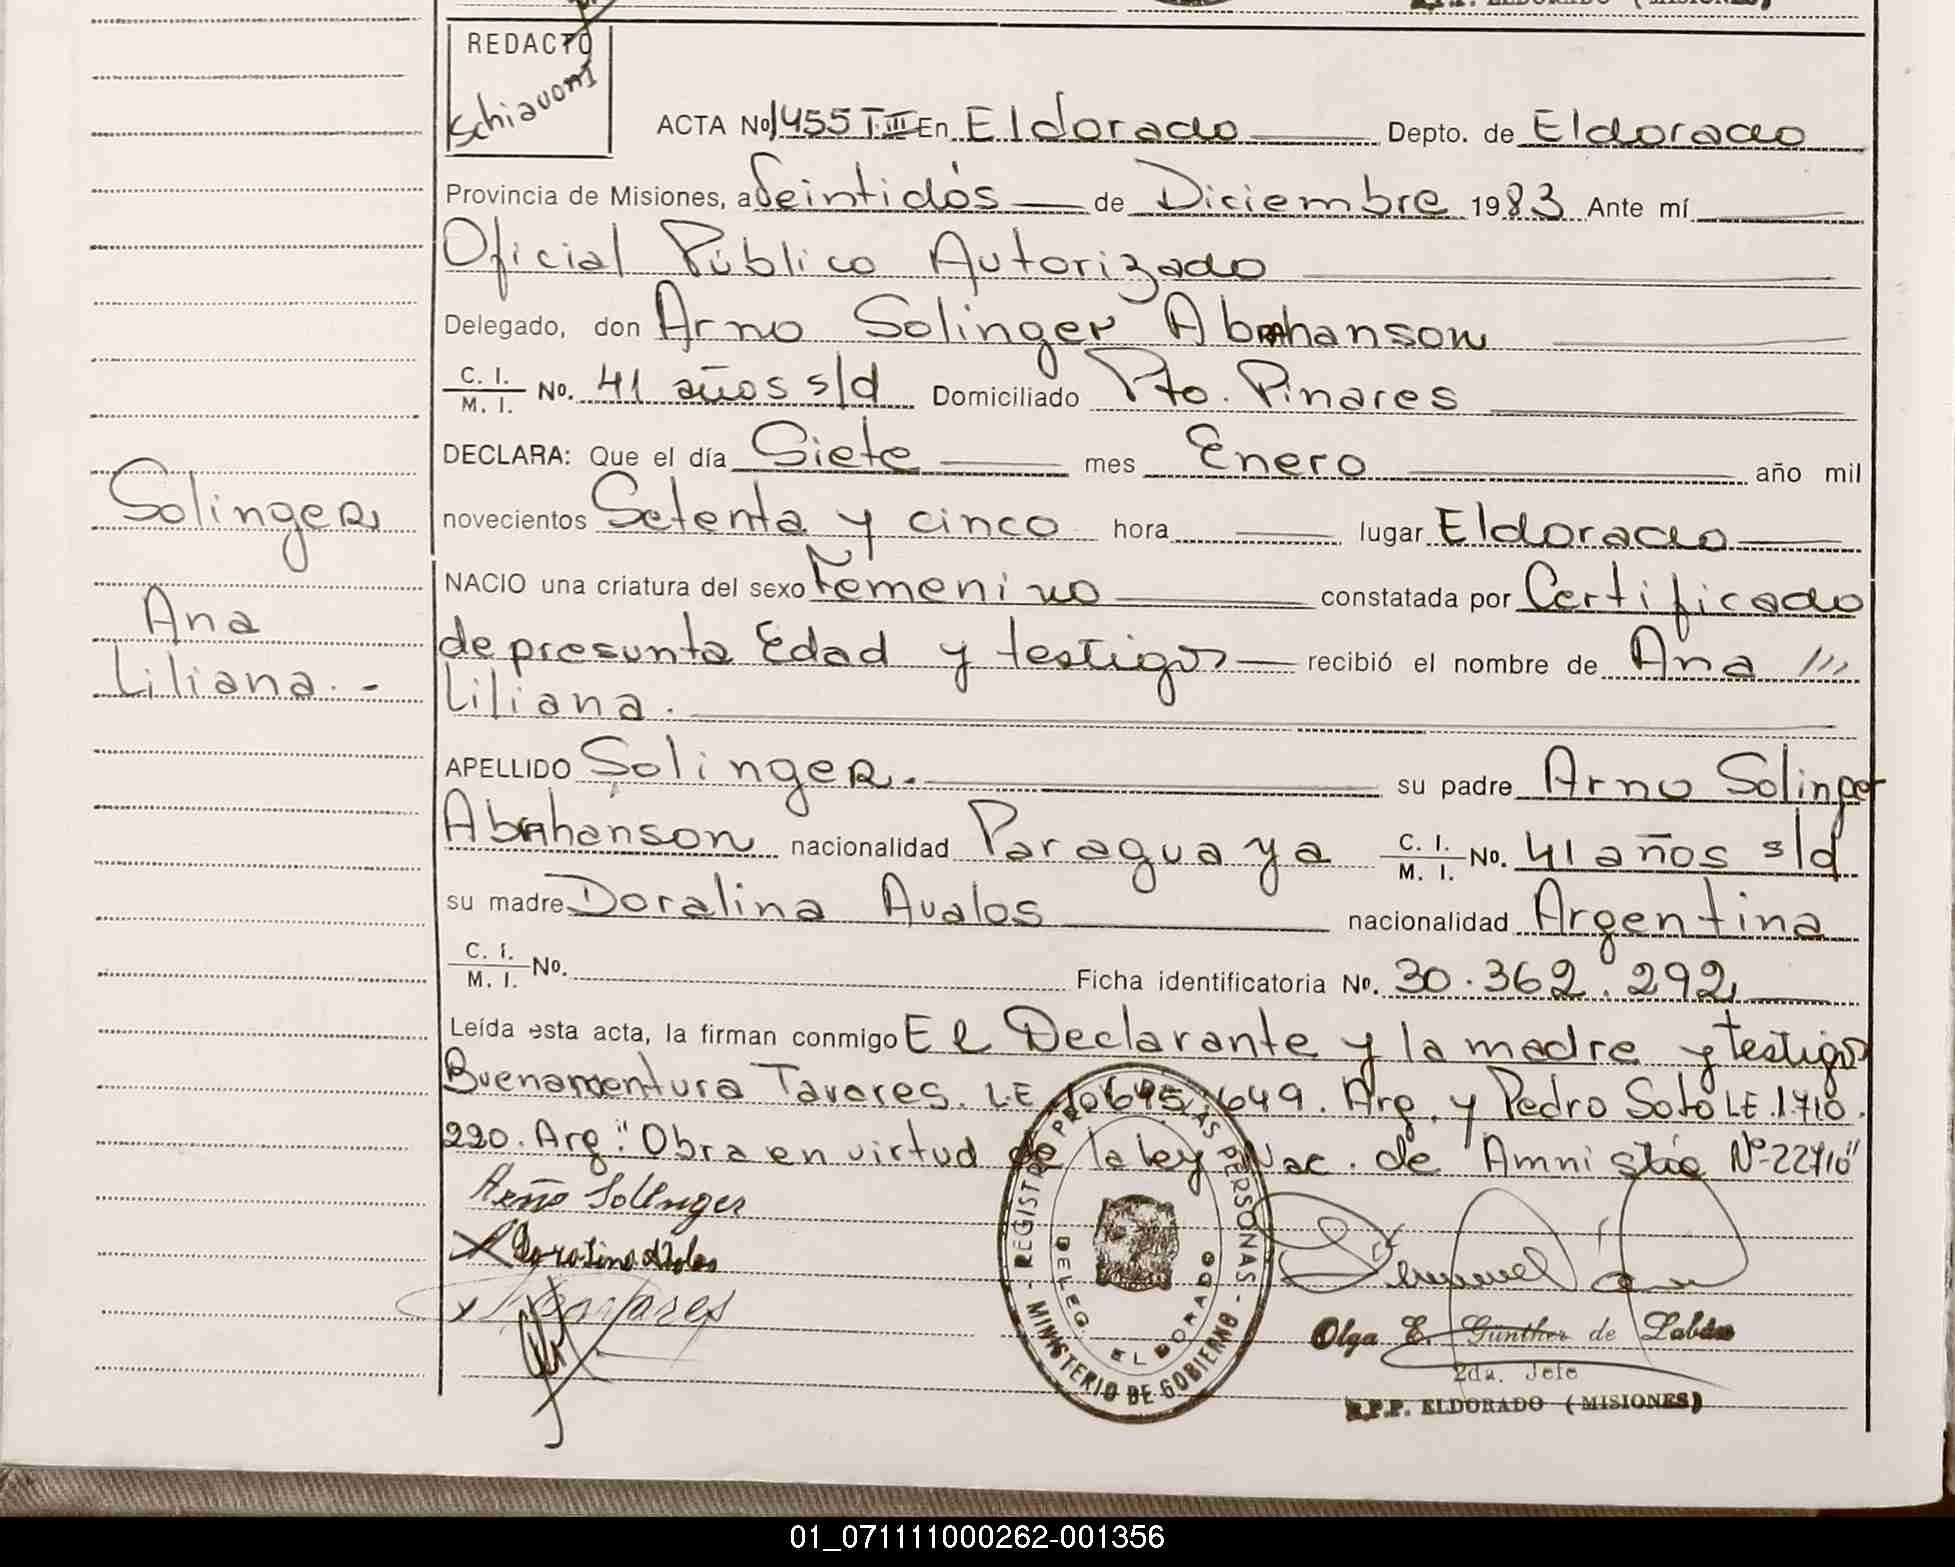 R.P.P. ELDORADO (MISIONES)
REDACTO
Schiavoni
ACTA No 1455 T.III En Eldorado Depto. de Eldorado
Provincia de Misiones, a Veintidós de Diciembre 1983 Ante mí
Oficial Público Autorizado
Delegado, don Arno Solinger Abrahanson
C. I. M. I. No. 41 años s/d Domiciliado Pto. Pinares
DECLARA: Que el día Siete mes Enero año mil
novecientos Setenta y cinco hora lugar Eldorado
NACIO una criatura del sexo Femenino constatada por Certificado
de presunta Edad y testigos recibió el nombre de Ana ///
Liliana.
APELLIDO Solinger. su padre Arno Solinger
Abrahanson nacionalidad Paraguaya C. I. M. I. No. 41 años s/d
su madre Doralina Avalos nacionalidad Argentina
C. I. M. I. No. Ficha identificatoria No. 30.362.292
Leída esta acta, la firman conmigo El Declarante y la madre y testigos
Buenamentura Tavares. L.E. 10645.649. Arg. y Pedro Soto LE.1.710.
220. Arg. "Obra en virtud de la ley Nac. de Amnistía Nº 22710"
Solinger
Ana
Liliana.-
Arno Solinger
Doralina Avalos
Tavares
REGISTRO PROV. DE LAS PERSONAS - MINISTERIO DE GOBIERNO -
DELEG. ELDORADO
Olga E. Günther de Labán
2da. Jefe
R.P.P. ELDORADO (MISIONES)
01_071111000262-001356